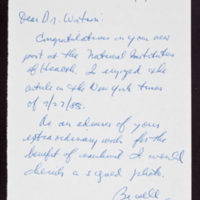 Dear Dr. Watson:
Congratulations on your new
post at the National Institutes
of Health. I enjoyed the
article in the New York Times
of 9/27/88.
As an admirer of your
extraordinary work for the
benefit of mankind I would
cherish a signed photo.
Be well